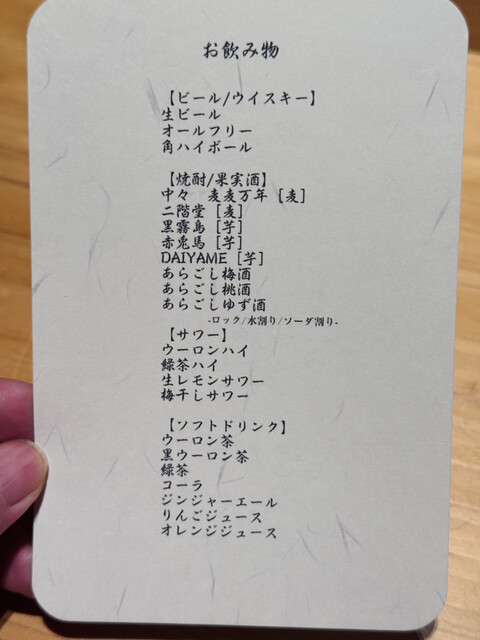 お飲み物
【ビール/ウイスキー】
生ビール
オールフリー
角ハイボール
【焼酎/果実酒】
中々　麦麦万年［麦］
二階堂［麦］
黒霧島［芋］
赤兎馬［芋］
DAIYAME［芋］
あらごし梅酒
あらごし桃酒
あらごしゆず酒
-ロック/水割り/ソーダ割り-
【サワー】
ウーロンハイ
緑茶ハイ
生レモンサワー
梅干しサワー
【ソフトドリンク】
ウーロン茶
黒ウーロン茶
緑茶
コーラ
ジンジャーエール
りんごジュース
オレンジジュース